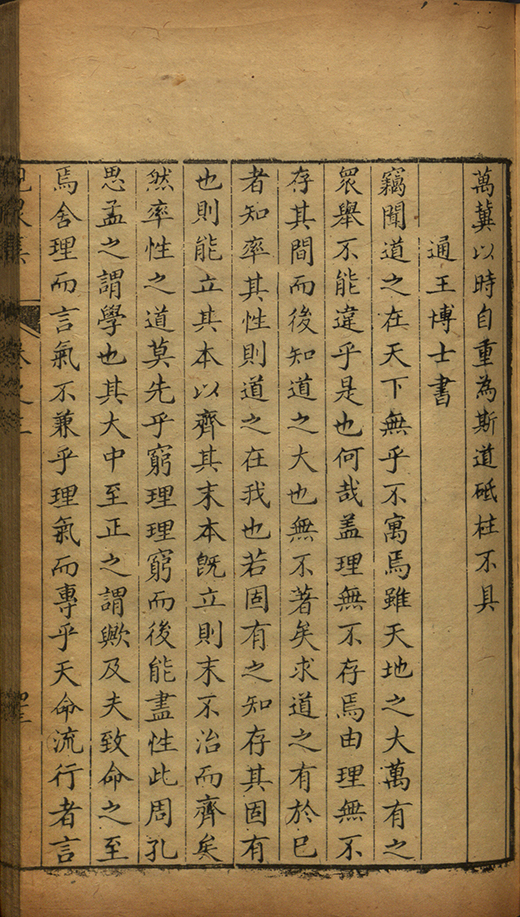 萬冀以時自重為斯道砥柱不具
通王博士書
竊聞道之在天下無乎不寓焉雖天地之大萬有之
眾舉不能違乎是也何哉盖理無不存焉由理無不
存其間而後知道之大也無不著矣求道之有於己
者知率其性則道之在我也若固有之知存其固有
也則能立其本以齊其末本既立則末不治而齊矣
然率性之道莫先乎窮理理窮而後能盡性此周孔
思孟之謂學也其大中至正之謂歟及夫致命之至
焉舍理而言氣不兼乎理氣而專乎天命流行者言